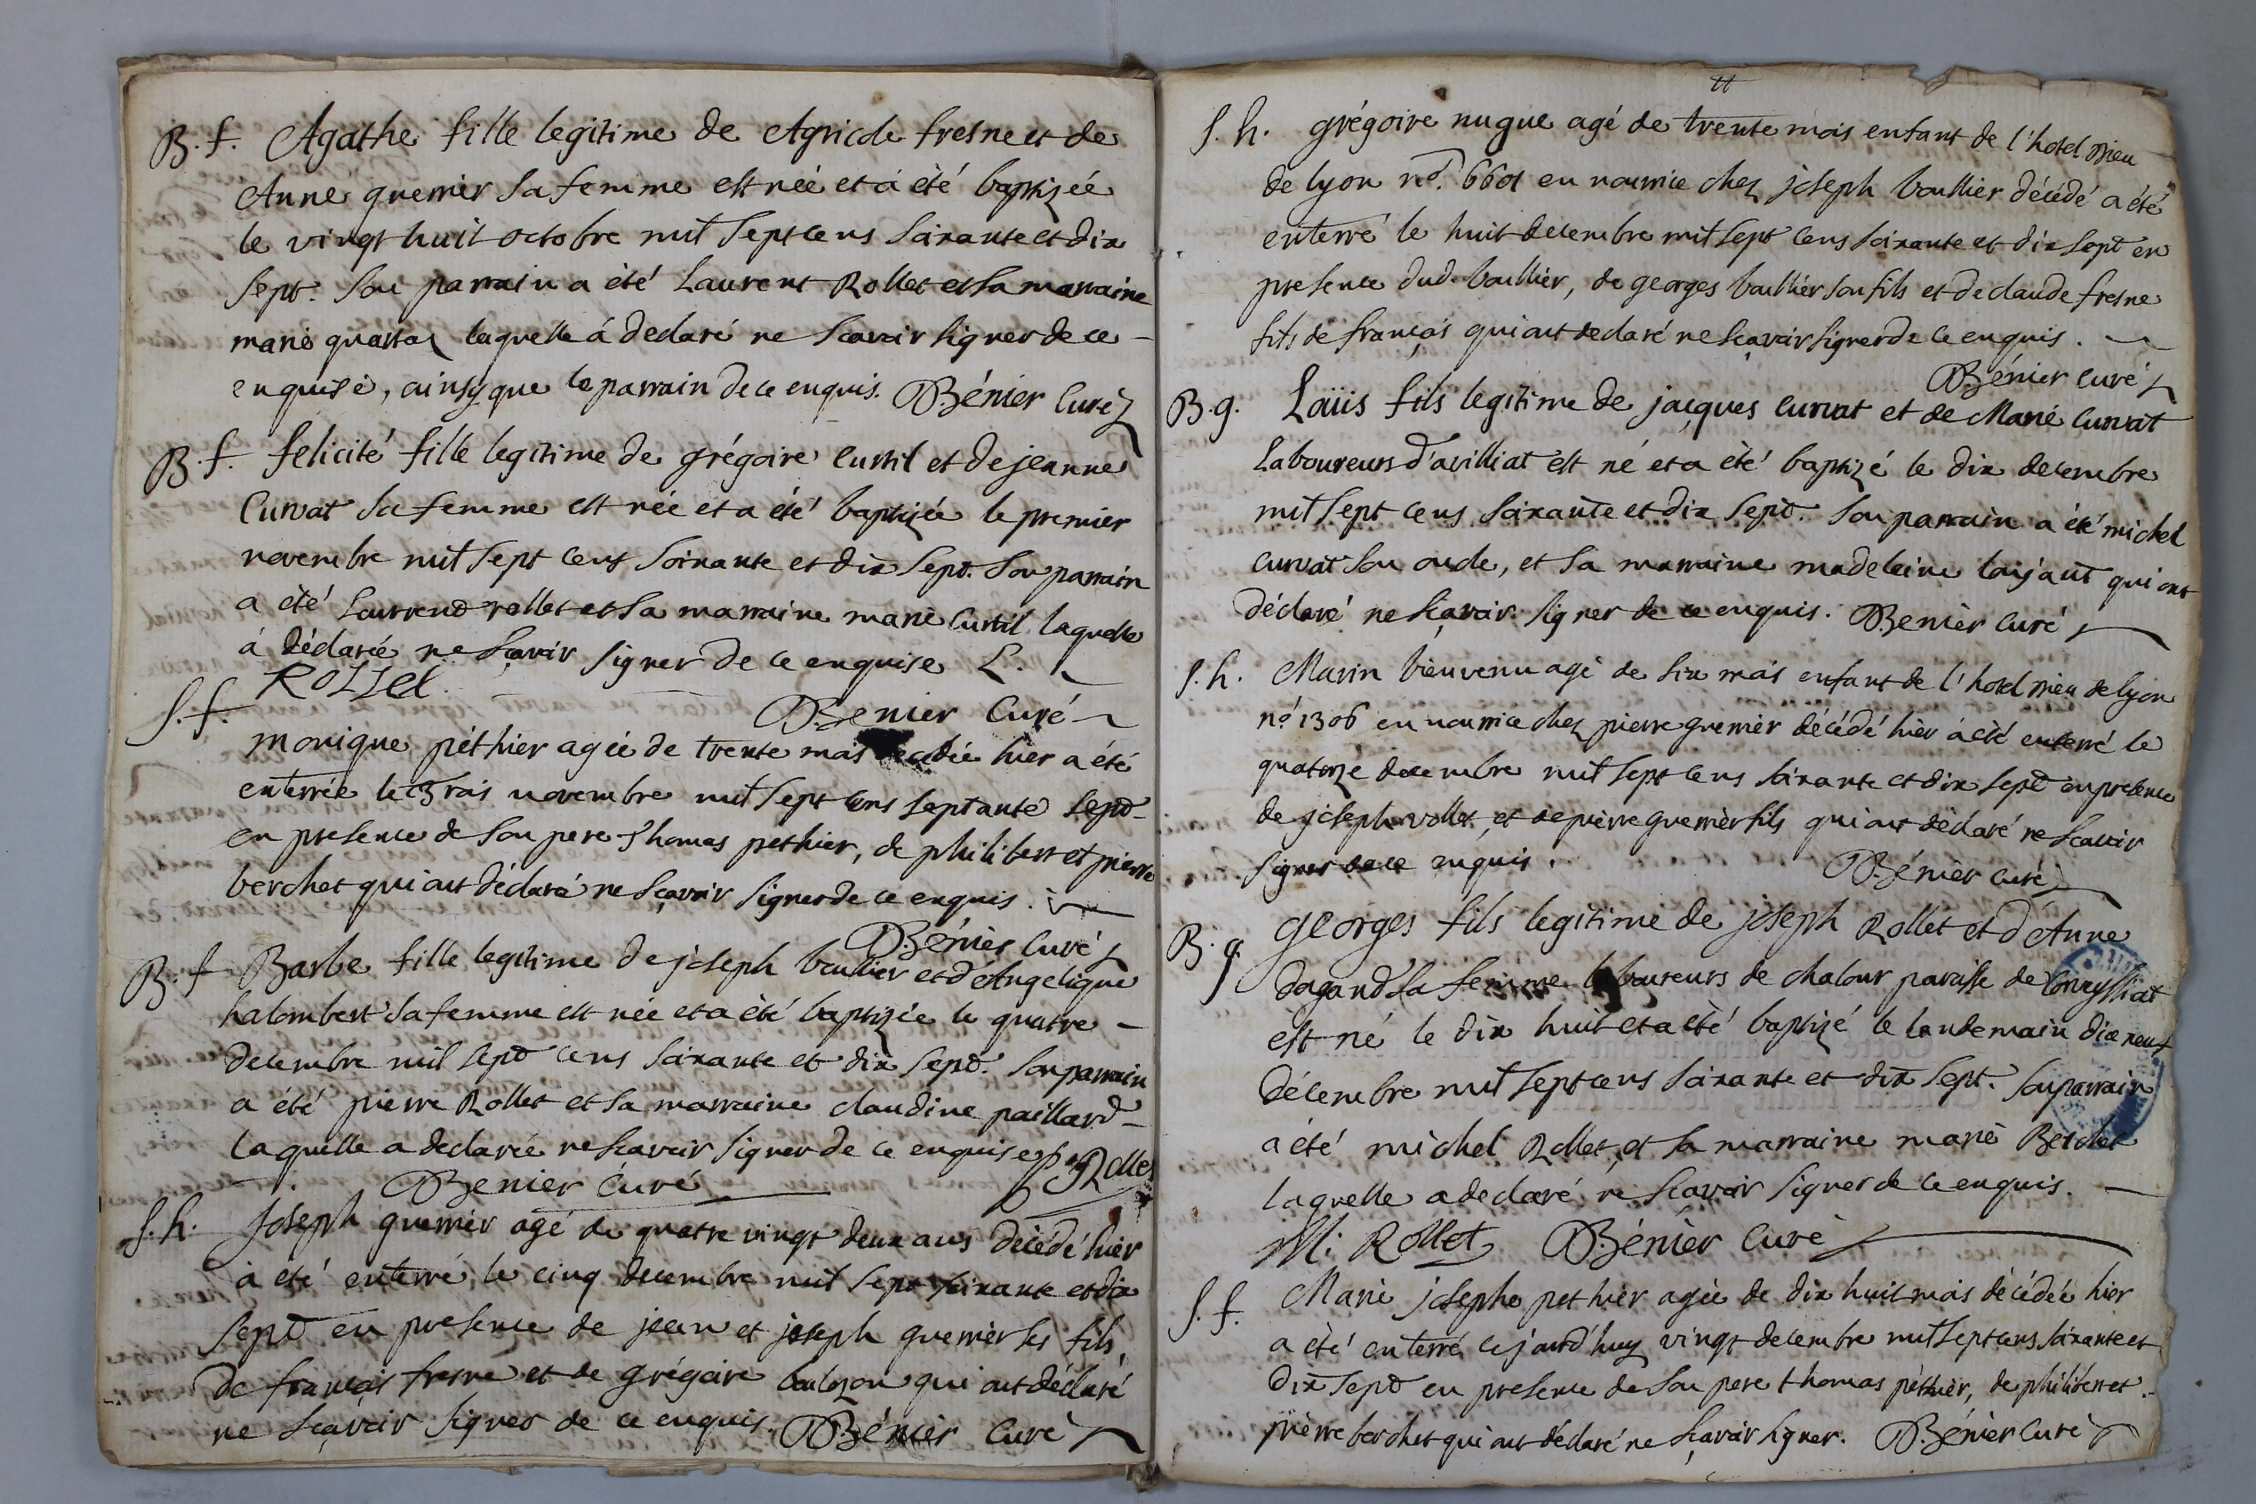 B. f. Agathe fille legitime de Agricole fresne et de
Anne guerrier sa femme est née et á été baptizée
le vingt huit octobre mil sept cens soixante et dix
sept. Son parrain a été Laurent Rollet et sa marraine
marie quartaz laquelle á declaré ne scavoir signer de ce
enquise, ainsy que le parrain de ce enquis. Bénier Curé
B. f. felicité fille legitime de grégoire Curtil et de jeanne
Curvat sa femme est née et a été baptizée le premier
novembre mil sept cens soixante et dix sept. Son parrain
a été Laurend rollet et sa marraine marie Curtil laquelle
á déclarée ne sçavoir signer de ce enquise L.
Rollet
Benier Curé
S. f.
monique péthier agée de trente mois décédée hier a été
enterrée le trois novembre mil sept cens septante sept
en presence de son pere Thomas pethier, de philibert et pierre
berchet qui ont déclaré ne sçavoir signer de ce enquis.
Bénier Curé
B. f. Barbe fille legitime de joseph boullier et d'Angelique
halombert sa femme est née et a été baptizée le quatre
decembre mil sept cens soixante et dix sept. Son parrain
a été pierre Rollet et sa marraine claudine paillard
laquelle a declarée ne scavoir signer de ce enquise P. Rollet
Benier Curé
S. h. joseph guerrier agé de quatre vingt deux ans décédé hier
a été enterré le cinq decembre mil sept soixante et dix
sept en presence de jean et joseph guerrier ses fils,
de françois fresne et de grégoire boulzon qui ont déclaré
ne sçavoir signer de ce enquis. Bénier Curé
tt
S. h. grégoire nugue agé de trente mois enfant de l'hotel Dieu
de lyon no. 6601 en nourrice chez joseph boullier décédé a été
enterré le huit decembre mil sept cens soixante et dix sept en
presence dud. boullier, de georges boullier son fils et de claude fresne
fils de françois qui ont declaré ne sçavoir signer de ce enquis.
Bénier Curé
B. g. Loüis fils legitime de jacques Curvat et de Marie Curvat
Laboureurs d'avilliat est né et a été baptizé le dix decembre
mil sept cens soixante et dix sept. Son parrain a été michel
Curvat son oncle, et sa marraine madeleine loujant qui ont
déclaré ne sçavoir signer de ce enquis. Benier Curé
S. h. Marin bienvenu agé de six mois enfant de l'hotel Dieu de lyon
no. 1306 en nourrice chez pierre guerrier décédé hier á été enterré le
quatorze decembre mil sept cens soixante et dix sept en presence
de joseph vollet, et de pierre guerrier fils qui ont déclaré ne scavoir
signer de ce enquis.
Bénier Curé
B. g. georges fils legitime de joseph Rollet et d'Anne
dagand sa femme laboureurs de chalour paroisse de Coneyssiat
est né le dix huit et a été baptizé le landemain dix neuf
décembre mil sept cens soixante et dix sept. Son parrain
a été michel Rollet, et sa marraine marie Berchet
laquelle a declaré ne scavoir signer de ce enquis.
M. Rollet Bénier Curé
S. f. Marie josephe pethier agée de dix huit mois décédée hier
a été enterré cejourd'huy vingt decembre mil sept cens soixante et
dix sept en presence de son pere thomas péthier, de philibert et
pierre berchet qui ont déclaré ne sçavoir signer. Bénier Curé